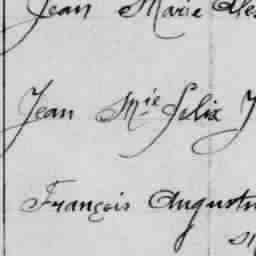 Jean Marie
Jean Mie felix
François Augustin